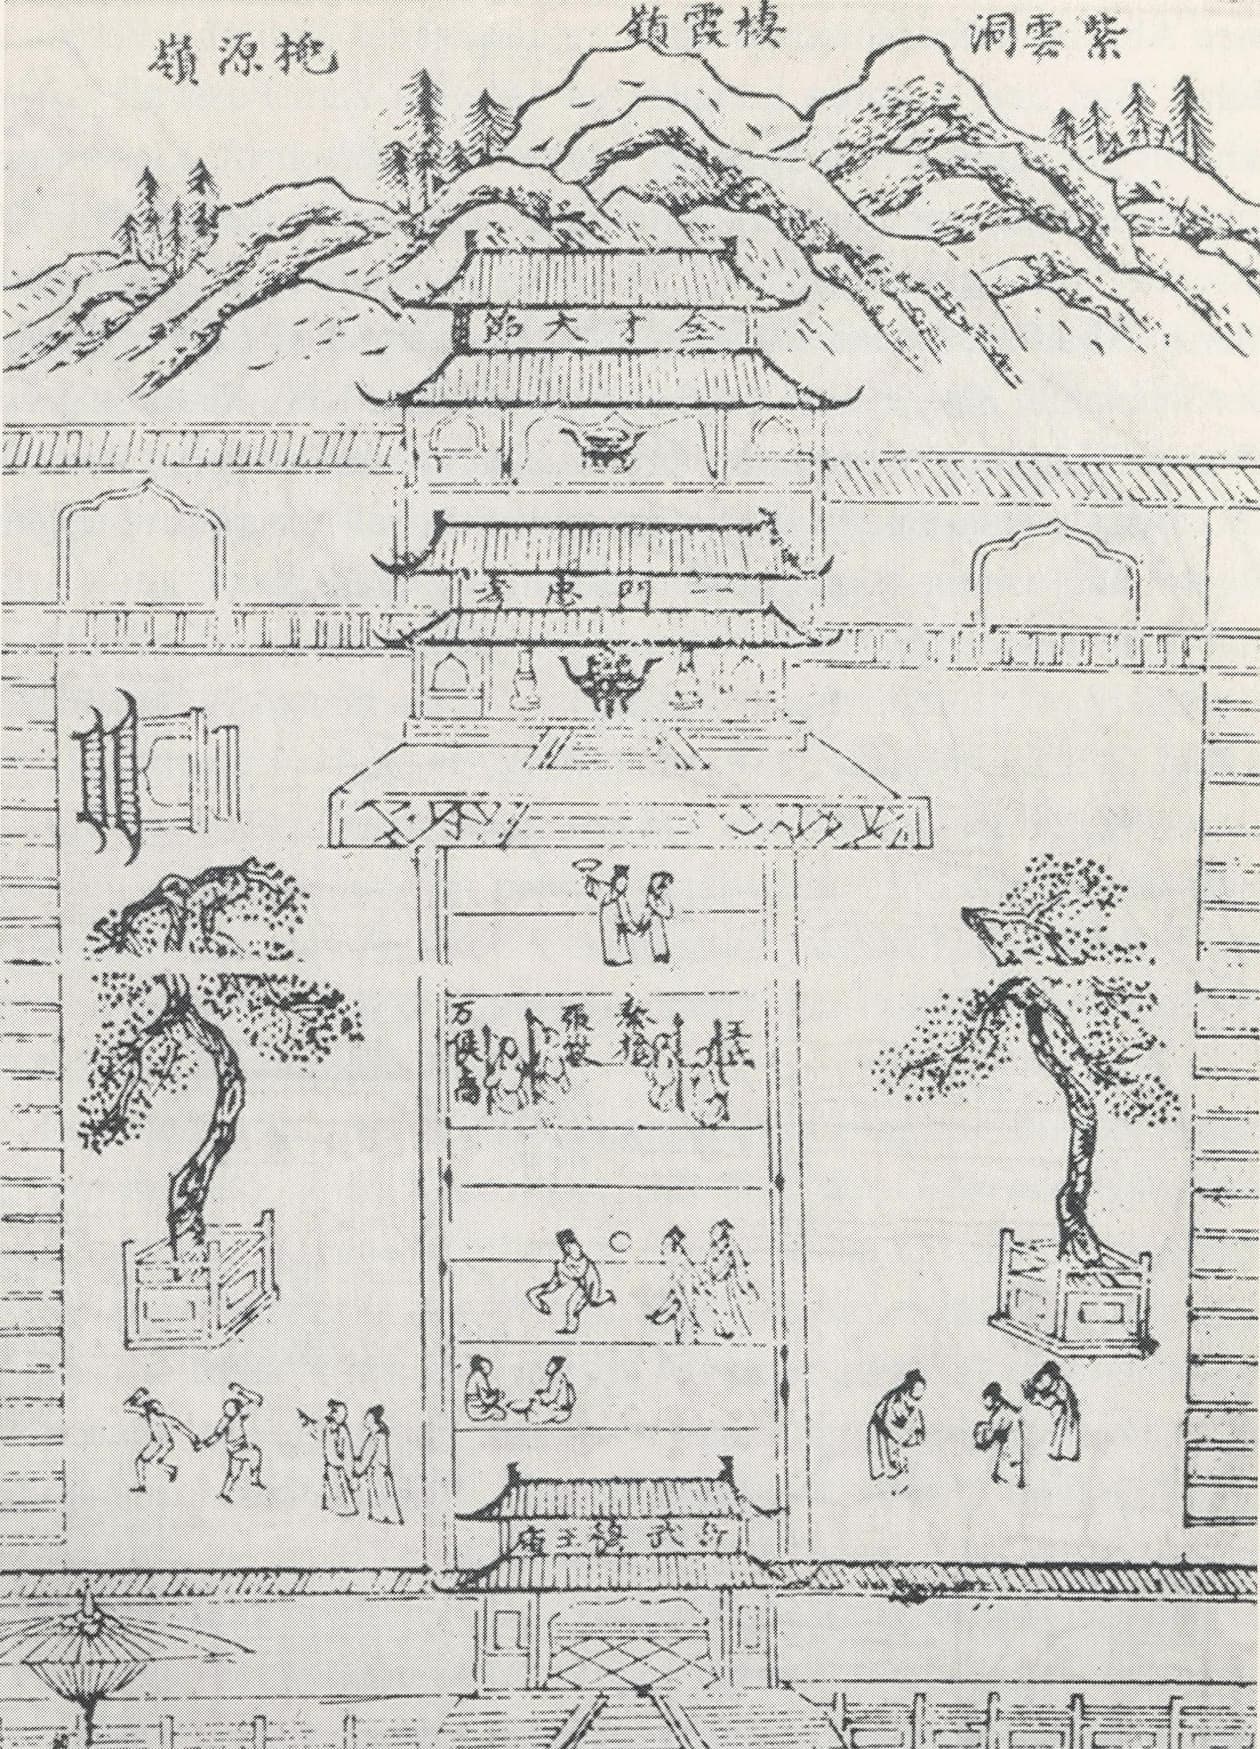 紫雲洞
棲霞嶺
桃源嶺
全才大節
一門忠孝
王氏
秦檜
張俊
万俟卨
岳武穆王庙